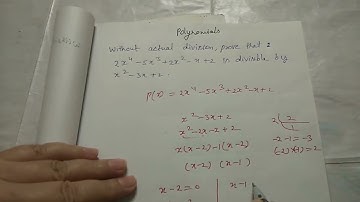 Polynomials
Without actual division, prove that
2x⁴ - 5x³ + 2x² - x + 2 is divisible by
x² - 3x + 2.
P(x) = 2x⁴ - 5x³ + 2x² - x + 2
x² - 3x + 2
x² - 2x - x + 2
x(x-2) - 1(x-2)
(x-2) (x-1)
2 | 2
1
-2 - 1 = -3
(-2)(-1) = 2
x - 2 = 0
x - 1